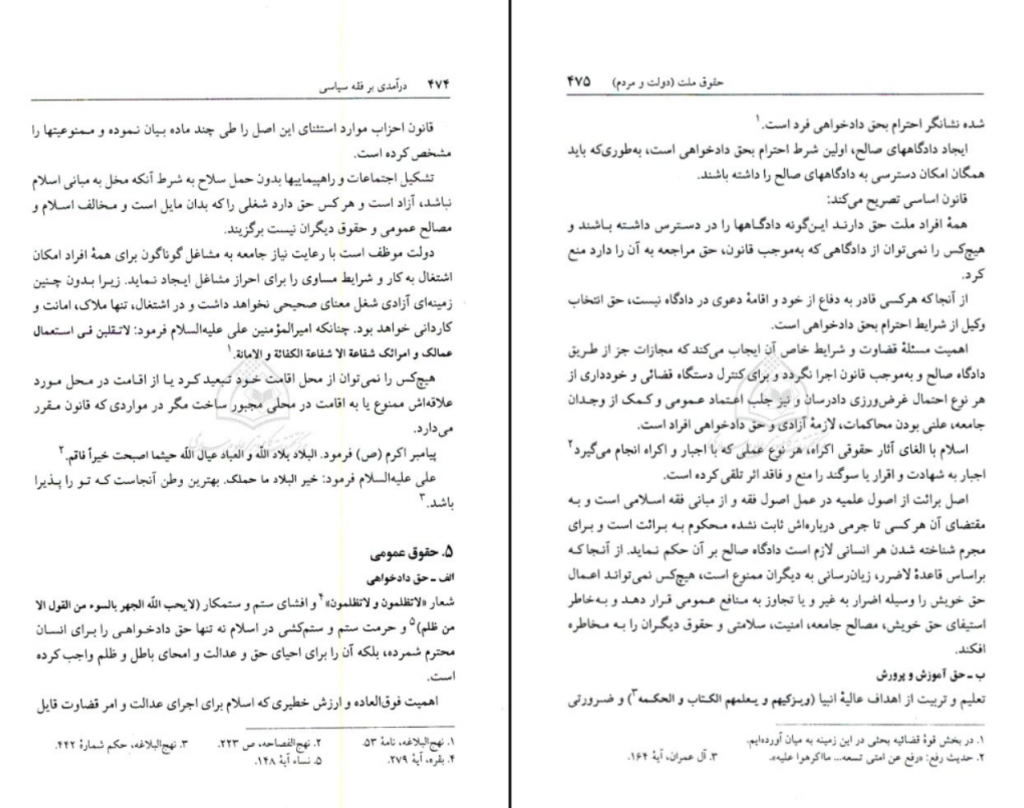 ۴۷۴ درآمدی بر فقه سیاسی
قانون احزاب موارد استثنای این اصل را طی چند ماده بیان نموده و ممنوعیتها را
مشخص کرده است.
تشکیل اجتماعات و راهپیماییها بدون حمل سلاح به شرط آنکه مخل به مبانی اسلام
نباشد، آزاد است و هر کس حق دارد شغلی را که بدان مایل است و مخالف اسلام و
مصالح عمومی و حقوق دیگران نیست برگزیند.
دولت موظف است با رعایت نیاز جامعه به مشاغل گوناگون برای همهٔ افراد امکان
اشتغال به کار و شرایط مساوی را برای احراز مشاغل ایجاد نماید. زیرا بدون چنین
زمینه‌ای آزادی شغل معنای صحیحی نخواهد داشت و در اشتغال، تنها ملاک، امانت و
کاردانی خواهد بود. چنانکه امیرالمؤمنین علی علیه‌السلام فرمود: لاتقلبن فی استعمال
عمالک و امرائک شفاعة الا شفاعة الکفائة و الامانة.۱
هیچ‌کس را نمی‌توان از محل اقامت خود تبعید کرد یا از اقامت در محل مورد
علاقه‌اش ممنوع یا به اقامت در محلی مجبور ساخت مگر در مواردی که قانون مقرر
می‌دارد.
پیامبر اکرم (ص) فرمود. البلاد بلاد الله و العباد عیال الله حیثما اصبحت خیراً فاقم.۲
علی علیه‌السلام فرمود: خیر البلاد ما حملک. بهترین وطن آنجاست که تو را پذیرا
باشد.۳
۵. حقوق عمومی
الف ـ حق دادخواهی
شعار «لاتظلمون و لاتظلمون»۴ و افشای ستم و ستمکار (لایحب الله الجهر بالسوء من القول الا
من ظلم)۵ و حرمت ستم و ستم‌کشی در اسلام نه تنها حق دادخواهی را برای انسان
محترم شمرده، بلکه آن را برای احیای حق و عدالت و امحای باطل و ظلم واجب کرده
است.
اهمیت فوق‌العاده و ارزش خطیری که اسلام برای اجرای عدالت و امر قضاوت قایل
۱. نهج‌البلاغه، نامهٔ ۵۳. ۲. نهج‌الفصاحه، ص ۲۲۳. ۳. نهج‌البلاغه، حکم شمارهٔ ۴۴۲.
۴. بقره، آیهٔ ۲۷۹. ۵. نساء آیهٔ ۱۴۸.
حقوق ملت (دولت و مردم) ۴۷۵
شده نشانگر احترام بحق دادخواهی فرد است.۱
ایجاد دادگاههای صالح، اولین شرط احترام بحق دادخواهی است، به‌طوری‌که باید
همگان امکان دسترسی به دادگاههای صالح را داشته باشند.
قانون اساسی تصریح می‌کند:
همهٔ افراد ملت حق دارند این‌گونه دادگاهها را در دسترس داشته باشند و
هیچ‌کس را نمی‌توان از دادگاهی که به‌موجب قانون، حق مراجعه به آن را دارد منع
کرد.
از آنجا که هرکسی قادر به دفاع از خود و اقامهٔ دعوی در دادگاه نیست، حق انتخاب
وکیل از شرایط احترام بحق دادخواهی است.
اهمیت مسئلهٔ قضاوت و شرایط خاص آن ایجاب می‌کند که مجازات جز از طریق
دادگاه صالح و به‌موجب قانون اجرا نگردد و برای کنترل دستگاه قضائی و خودداری از
هر نوع احتمال غرض‌ورزی دادرسان و نیز جلب اعتماد عمومی و کمک از وجدان
جامعه، علنی بودن محاکمات، لازمهٔ آزادی و حق دادخواهی افراد است.
اسلام با الغای آثار حقوقی اکراه، هر نوع عملی که با اجبار و اکراه انجام می‌گیرد۲
اجبار به شهادت و اقرار یا سوگند را منع و فاقد اثر تلقی کرده است.
اصل برائت از اصول علمیه در عمل اصول فقه و از مبانی فقه اسلامی است و به
مقتضای آن هر کسی تا جرمی درباره‌اش ثابت نشده محکوم به برائت است و برای
مجرم شناخته شدن هر انسانی لازم است دادگاه صالح بر آن حکم نماید. از آنجا که
براساس قاعدهٔ لاضرر، زیان‌رسانی به دیگران ممنوع است، هیچ‌کس نمی‌تواند اعمال
حق خویش را وسیله اضرار به غیر و یا تجاوز به منافع عمومی قرار دهد و به‌خاطر
استیفای حق خویش، مصالح جامعه، امنیت، سلامتی و حقوق دیگران را به مخاطره
افکند.
ب ـ حق آموزش و پرورش
تعلیم و تربیت از اهداف عالیهٔ انبیا (ویزکیهم و یعلمهم الکتاب و الحکمه۳) و ضرورتی
۱. در بخش قوهٔ قضائیه بحثی در این زمینه به میان آورده‌ایم.
۲. حدیث رفع: «رفع عن امتی تسعه... مااکرهوا علیه». ۳. آل عمران، آیهٔ ۱۶۴.